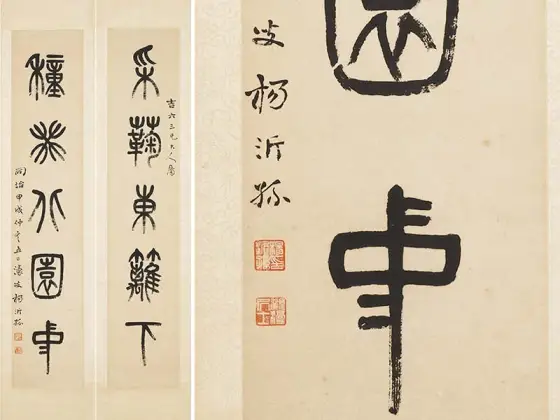 采鞠東籬下
吉六三兄大人屬
種園中
同治甲戌仲冬五日濠叟楊沂孫
園中
叟楊沂孫